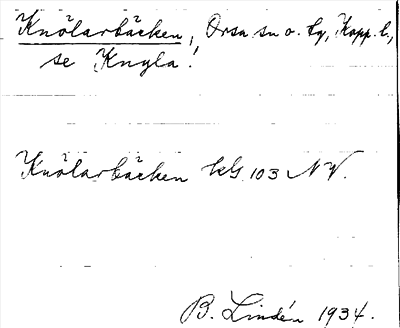 Knölarbäcken, Orsa sn o. by, Kopp. l.,
se Knyla!
Knölarbäcken kbl. 103 NV.
B. Lindén 1934.